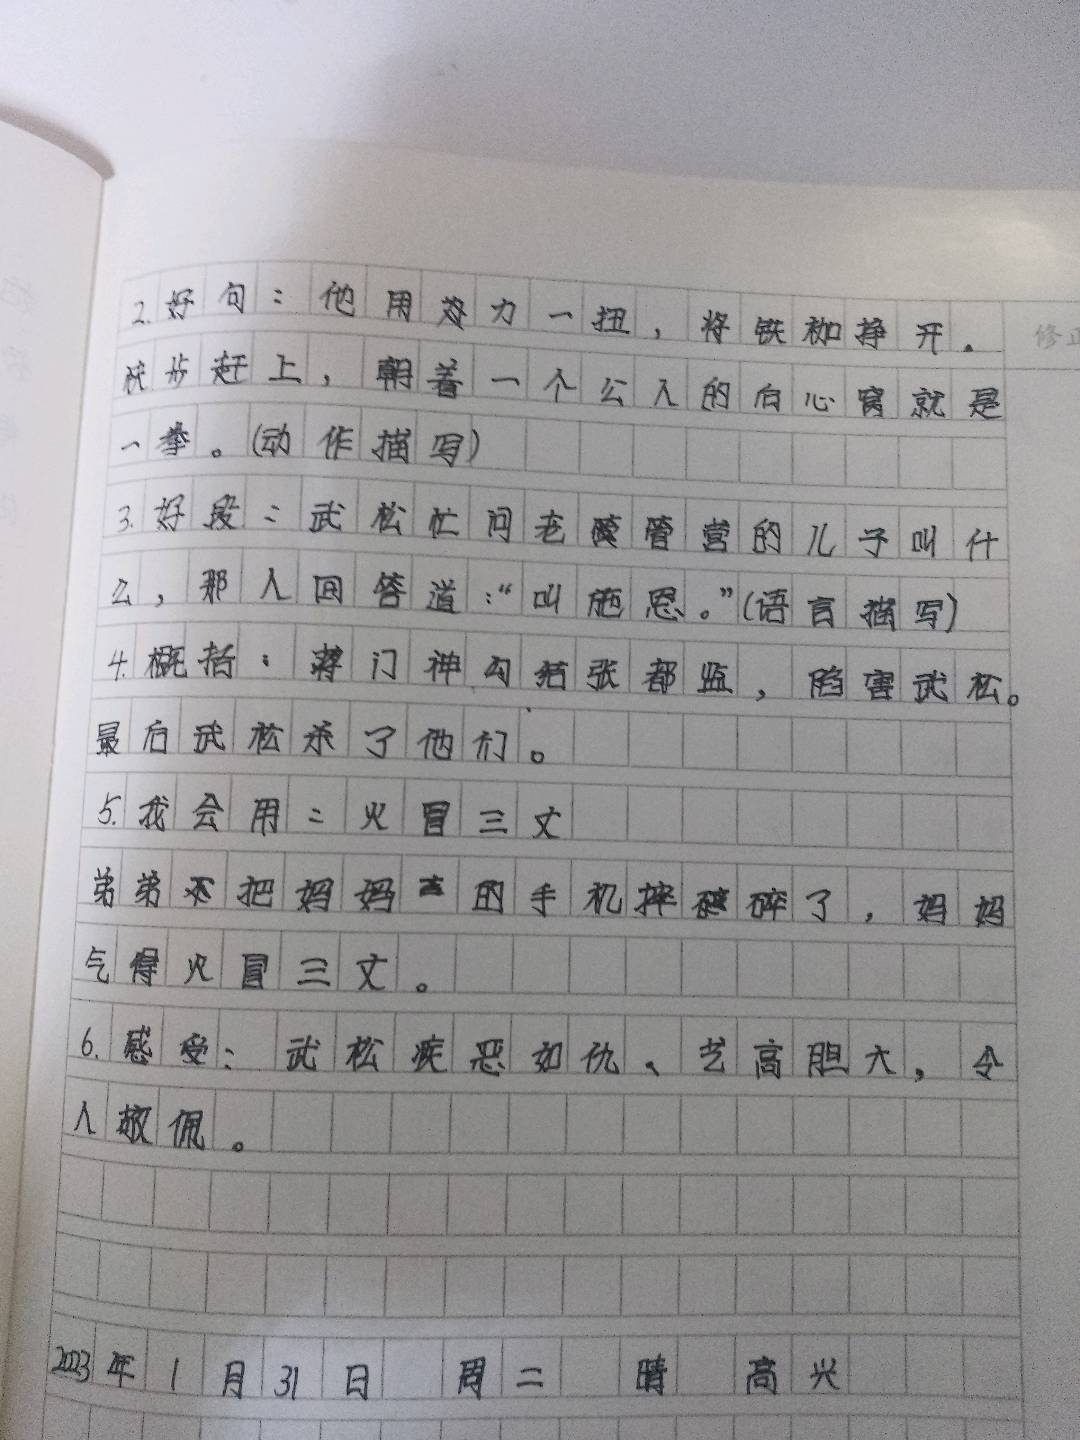 2.好句：他用劲力一扭，将铁枷挣开。
修正
快步赶上，朝着一个公人的后心窝就是
一拳。(动作描写)
3.好段：武松忙问老管营的儿子叫什
么，那人回答道：“叫施恩。”(语言描写)
4.概括：蒋门神勾结张都监，陷害武松。
最后武松杀了他们。
5.我会用：火冒三丈
弟弟把妈妈的手机摔碎了，妈妈
气得火冒三丈。
6.感受：武松疾恶如仇、艺高胆大，令
人敬佩。
2023年1月31日 周二 晴 高兴